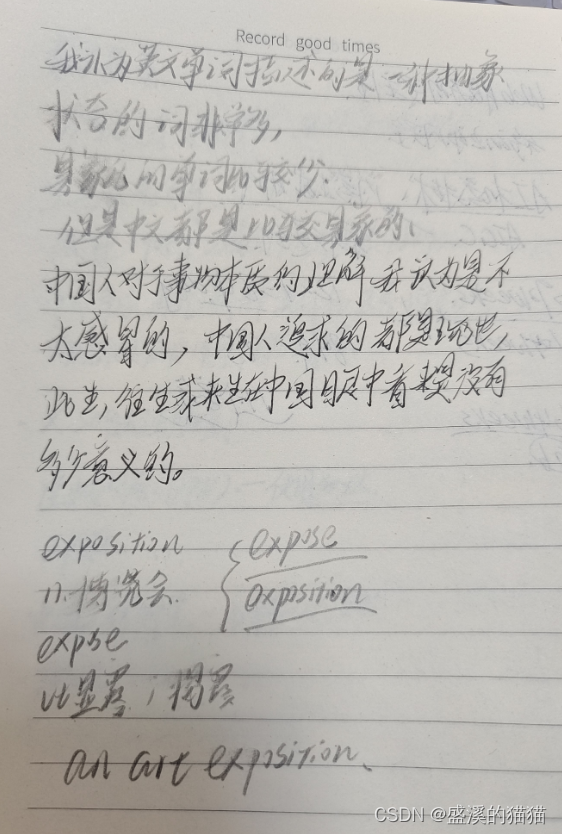 Record good times
我认为英文单词描述的是一种抽象
状态的词非常多，
具象化的单词比较少.
但是中文都是比较具象的，
中国人对于事物本质的理解我认为是不
太感冒的，中国人追求的都是现世，
此生，往生或来生在中国人眼中看来是没有
多少意义的。
exposition
n.博览会
expose
exposition
expose
vt显露；揭露
an art exposition.
CSDN @盛溪的猫猫